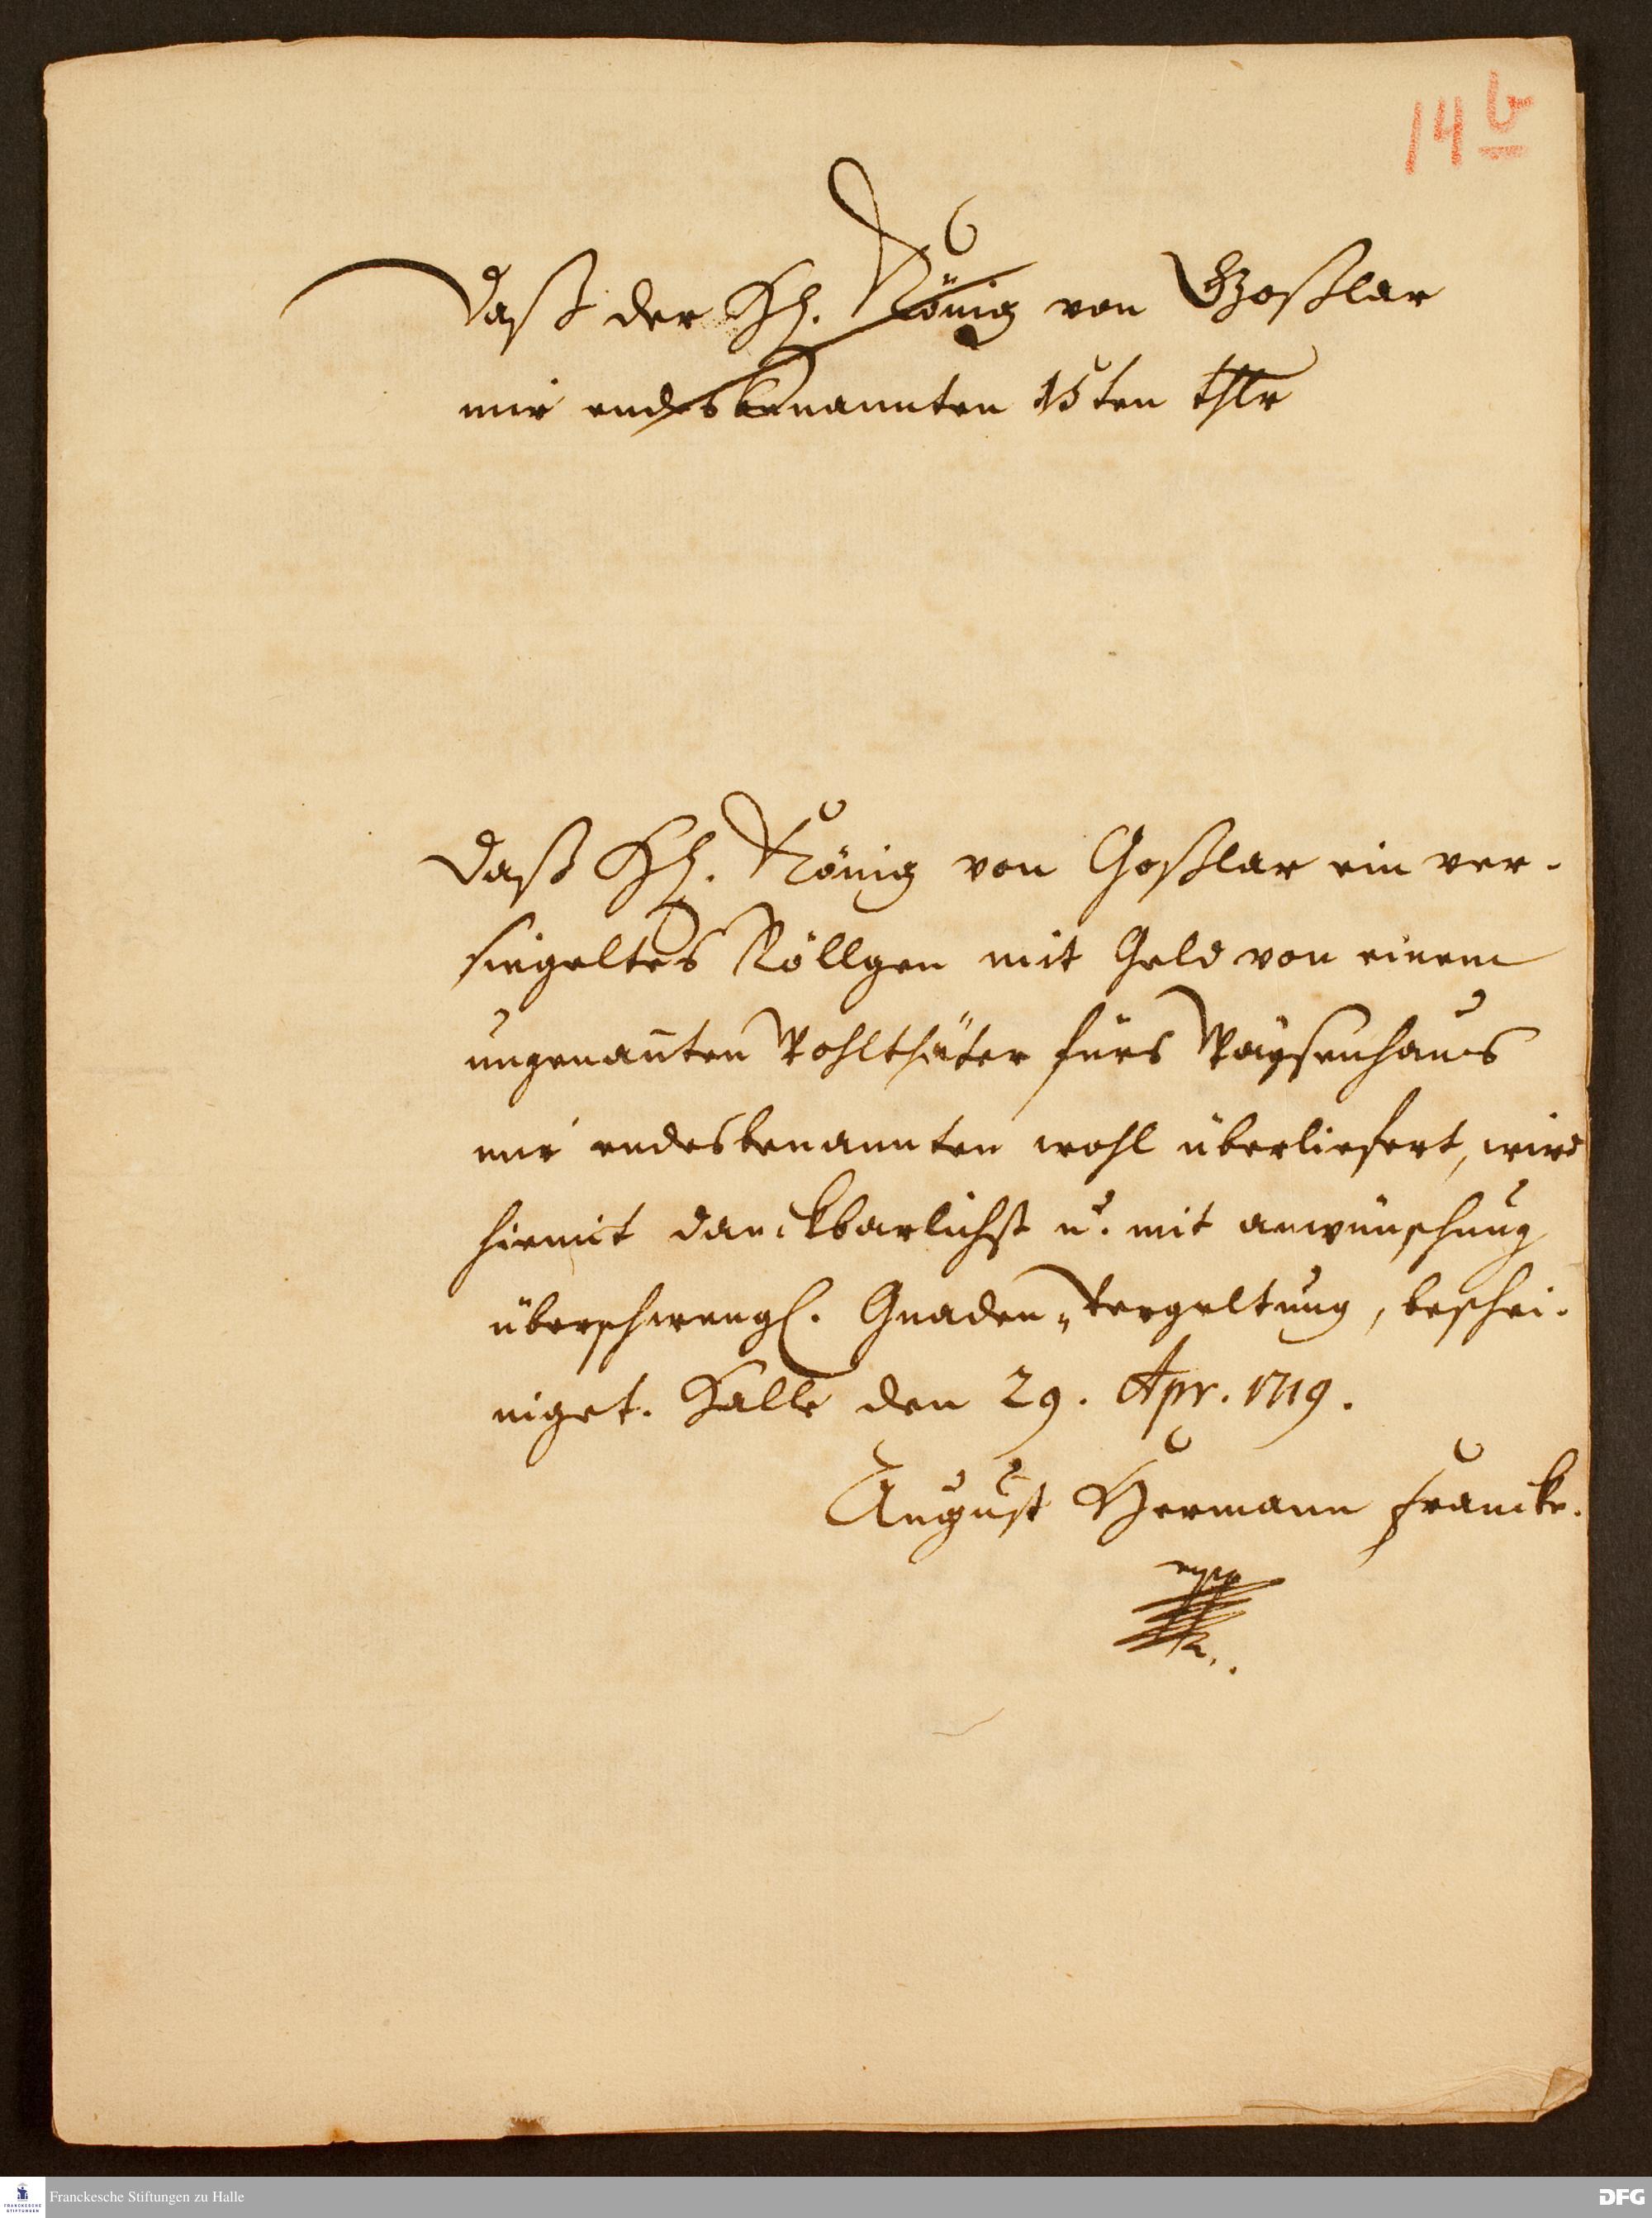 14 b
Daß der Hl. König von Goßlar
mir endesbenannten 15ten thlr
Daß Hl. König von Goßlar ein ver-
siegeltes Röllgen mit Geld von einem
ungenañten Wohlthäter fürs Wäysenhaus
mir endesbenannten wohl überliefert, wird
hiemit danckbarlichst u. mit anwünschung
überschwengl. Gnaden-Vergeltung, beschei-
niget. Halle den 29. Apr. 1719.
August Hermann Francke.
mppp
Franckesche Stiftungen zu Halle
DFG